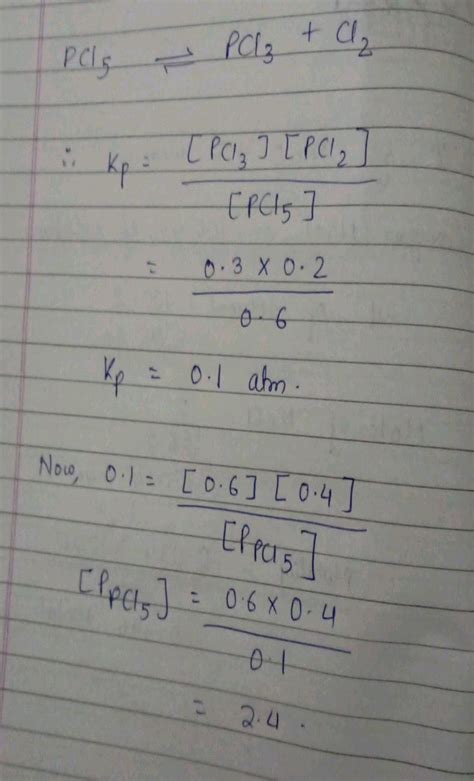 PCl5 ⇌ PCl3 + Cl2
∴ Kp = [PCl3] [PCl2] / [PCl5]
= 0.3 x 0.2 / 0.6
Kp = 0.1 atm.
Now, 0.1 = [0.6] [0.4] / [PPCl5]
[PPCl5] = 0.6 x 0.4 / 0.1
= 2.4 .